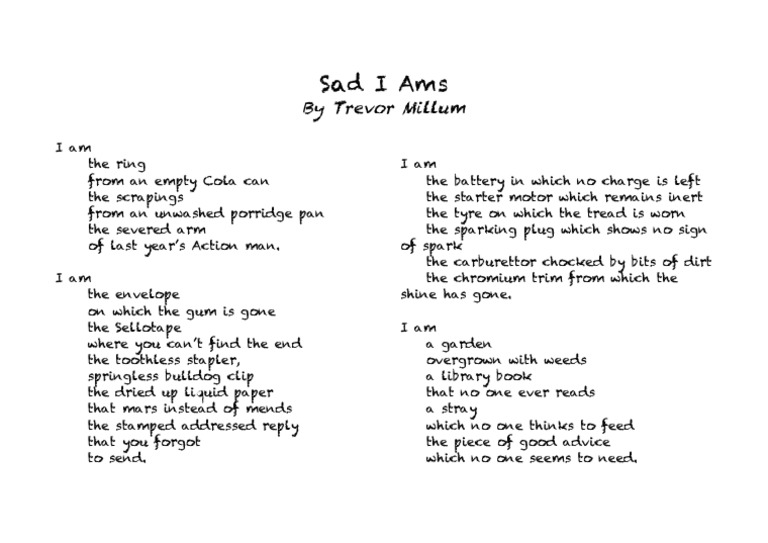 Sad I Ams
By Trevor Millum
I am
the ring
from an empty Cola can
the scrapings
from an unwashed porridge pan
the severed arm
of last year's Action man.
I am
the envelope
on which the gum is gone
the Sellotape
where you can't find the end
the toothless stapler,
springless bulldog clip
the dried up liquid paper
that mars instead of mends
the stamped addressed reply
that you forgot
to send.
I am
the battery in which no charge is left
the starter motor which remains inert
the tyre on which the tread is worn
the sparking plug which shows no sign
of spark
the carburettor chocked by bits of dirt
the chromium trim from which the
shine has gone.
I am
a garden
overgrown with weeds
a library book
that no one ever reads
a stray
which no one thinks to feed
the piece of good advice
which no one seems to need.